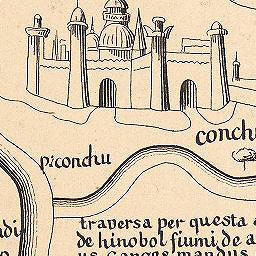 conchu
p:conchu
ndi
traversa per questa a
de hinobol fiumi de a
us Ganges mandus